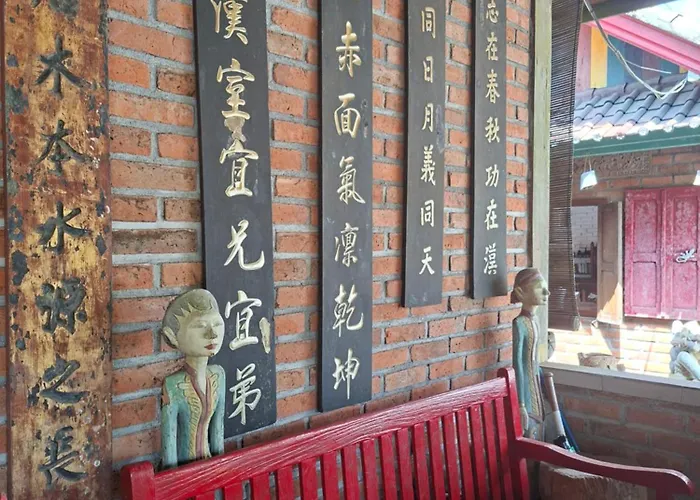 志在春秋功在漢
同日月義同天
赤面氣凛乾坤
漢室宜兄宜弟
木本水源之